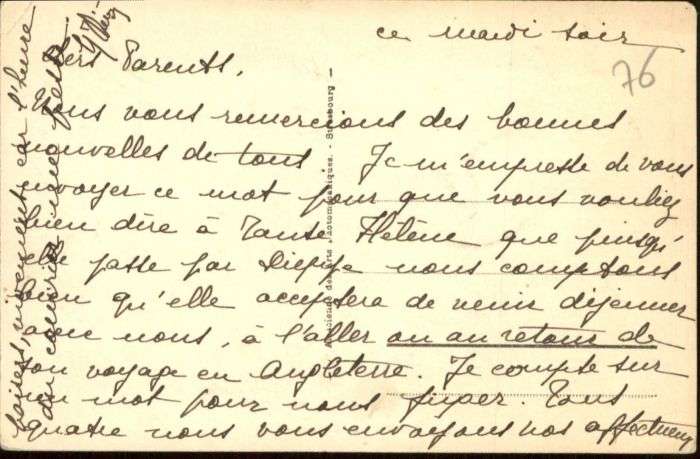 ce mardi soir
76
Chers Parents,
Nous vous remercions des bonnes
nouvelles de tous. Je m'empresse de vous
envoyer ce mot pour que vous vouliez
bien dire à Tante Hélène que puisqu'
elle passe par Dieppe nous comptons
bien qu'elle acceptera de venir déjeuner
avec nous, à l'aller ou au retour de
son voyage en Angleterre. Je compte sur
un mot pour nous fixer. Tous
quatre nous vous envoyons nos affectueux
baisers, vivement, car l'heure
du courrier me presse
Strasbourg